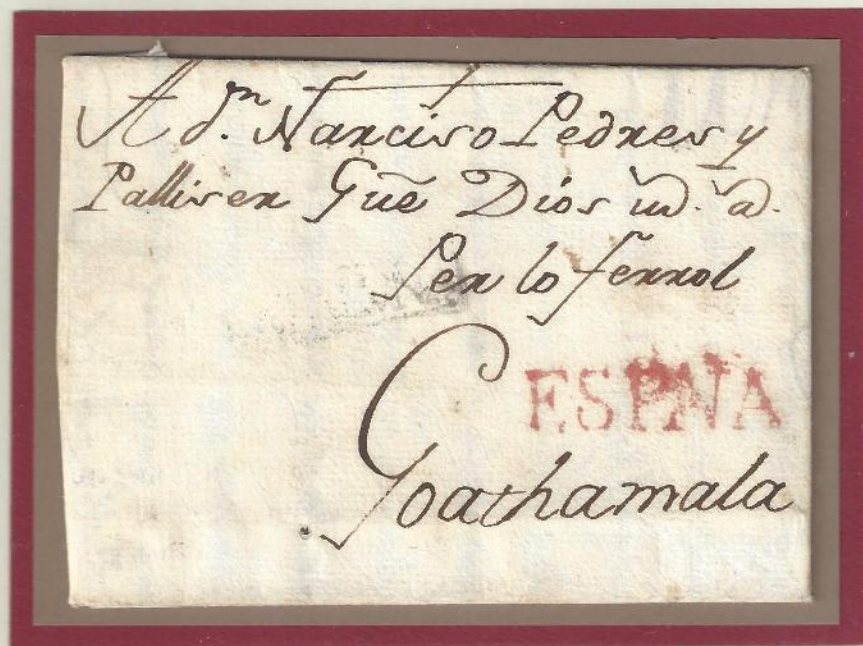 A d.n Narciso Pedres y
Palliser Gūe Dios
Per lo ferrol
ESPNA
Goathamala